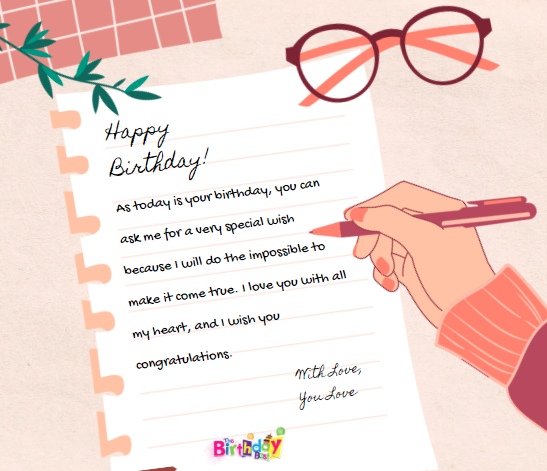 Happy
Birthday!
As today is your birthday, you can
ask me for a very special wish
because I will do the impossible to
make it come true. I love you with all
my heart, and I wish you
congratulations.
With Love,
You Love
The
Birthday
Best